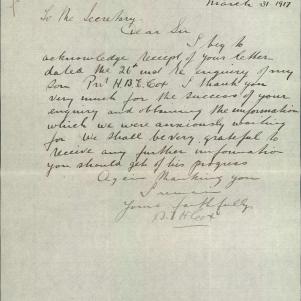 March 31 1917
To the Secretary
Dear Sir
I beg to
acknowledge receipt of your letter
dated the 26th inst re enquiry of my
son Prvt H.B.E. Cox I thank you
very much for the success of your
enquiry and obtaining the information
which we were anxiously waiting
for We shall be very grateful to
receive any further information
you should get of his progress
Again thanking you
I remain
Yours faithfully
H Cox